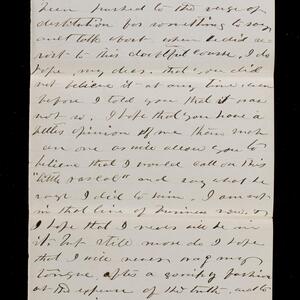 been pushed to the verge of
destitution for something to say
and talk about when he did re-
sort to this doubtful course, I do
hope, my dear, that you did
not believe it at any time, even
before I told you that it was
not so. I hope that you have a
better opinion of me than such
an one as will allow you to
believe that I would call on this
"little rascal" and say what he
says I did to him. I am not
in that line of business now, &
I hope that I never will be in
it; but still more do I hope
that I will never wag my
tongue after a gossip fashion
at the expense of the truth, and to